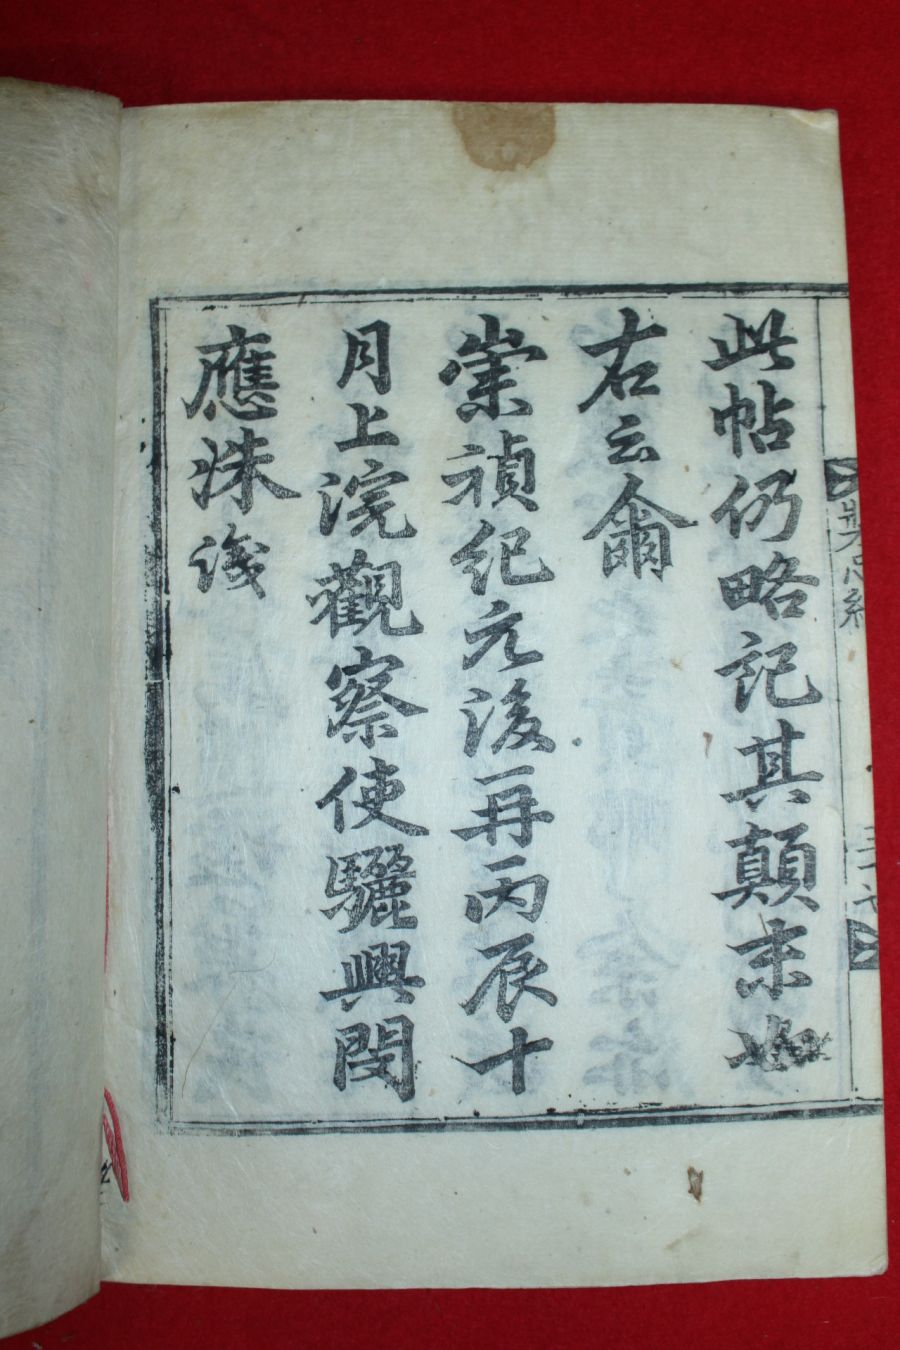 此帖仍略記其顛末如
右云爾
崇禎紀元後再丙辰十
月上浣觀察使驪興閔
應洙